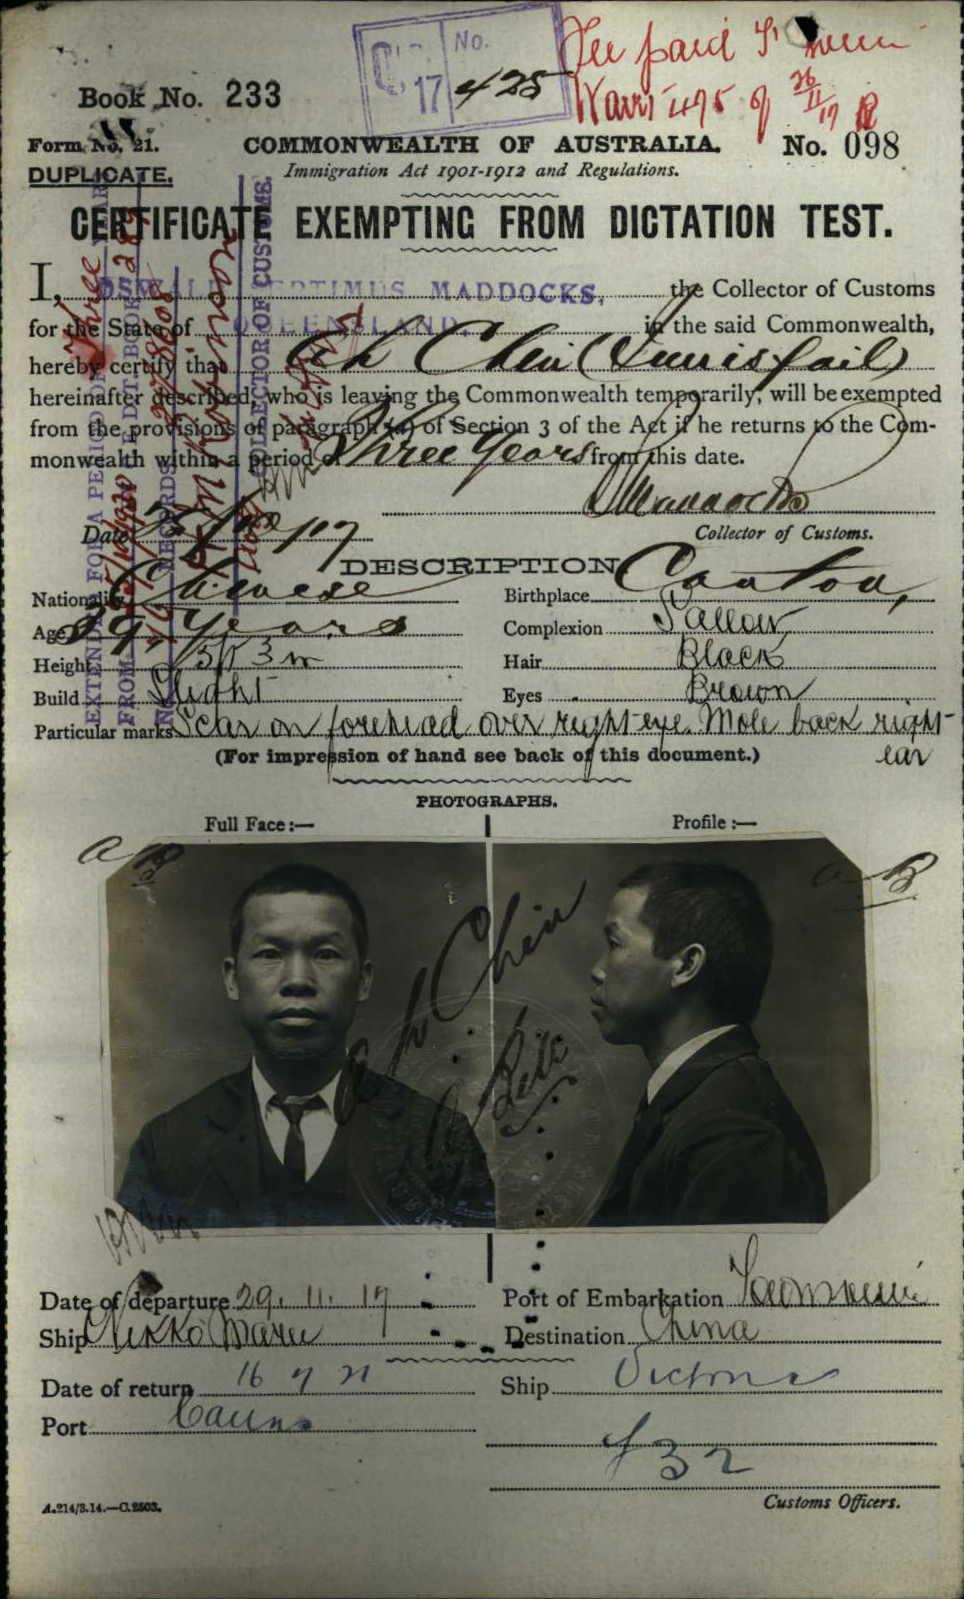 No.
C 17 425
Fee paid T'
495 of 26/11/17
Book No. 233
Form No. 21.
COMMONWEALTH OF AUSTRALIA.
No. 098
DUPLICATE.
Immigration Act 1901-1912 and Regulations.
CERTIFICATE EXEMPTING FROM DICTATION TEST.
I, OSWALD SEPTIMUS MADDOCKS, the Collector of Customs
for the State of QUEENSLAND, in the said Commonwealth,
hereby certify that Ah Chin (Innisfail)
hereinafter described, who is leaving the Commonwealth temporarily, will be exempted
from the provisions of paragraph (a) of Section 3 of the Act if he returns to the Com-
monwealth within a period of Three Years from this date.
Date
Collector of Customs.
EXTENDED FOR A PERIOD OF Three YEAR
FROM
RECORDS
COLLECTOR OF CUSTOMS.
DESCRIPTION
Nationality Chinese
Birthplace Canton,
Age 39 Years
Complexion Sallow
Height 5 ft 3 in
Hair Black
Build Slight
Eyes Brown
Particular marks Scar on forehead over right eye. Mole back right
ear
(For impression of hand see back of this document.)
PHOTOGRAPHS.
Full Face:—
Profile:—
Ah Chin
Date of departure 29. 11. 17
Port of Embarkation Townsville
Ship Nikko Maru
Destination China
Date of return 16 7 21
Ship Victoria
Port Cairns
432
A.214/3.14.—C.2503.
Customs Officers.